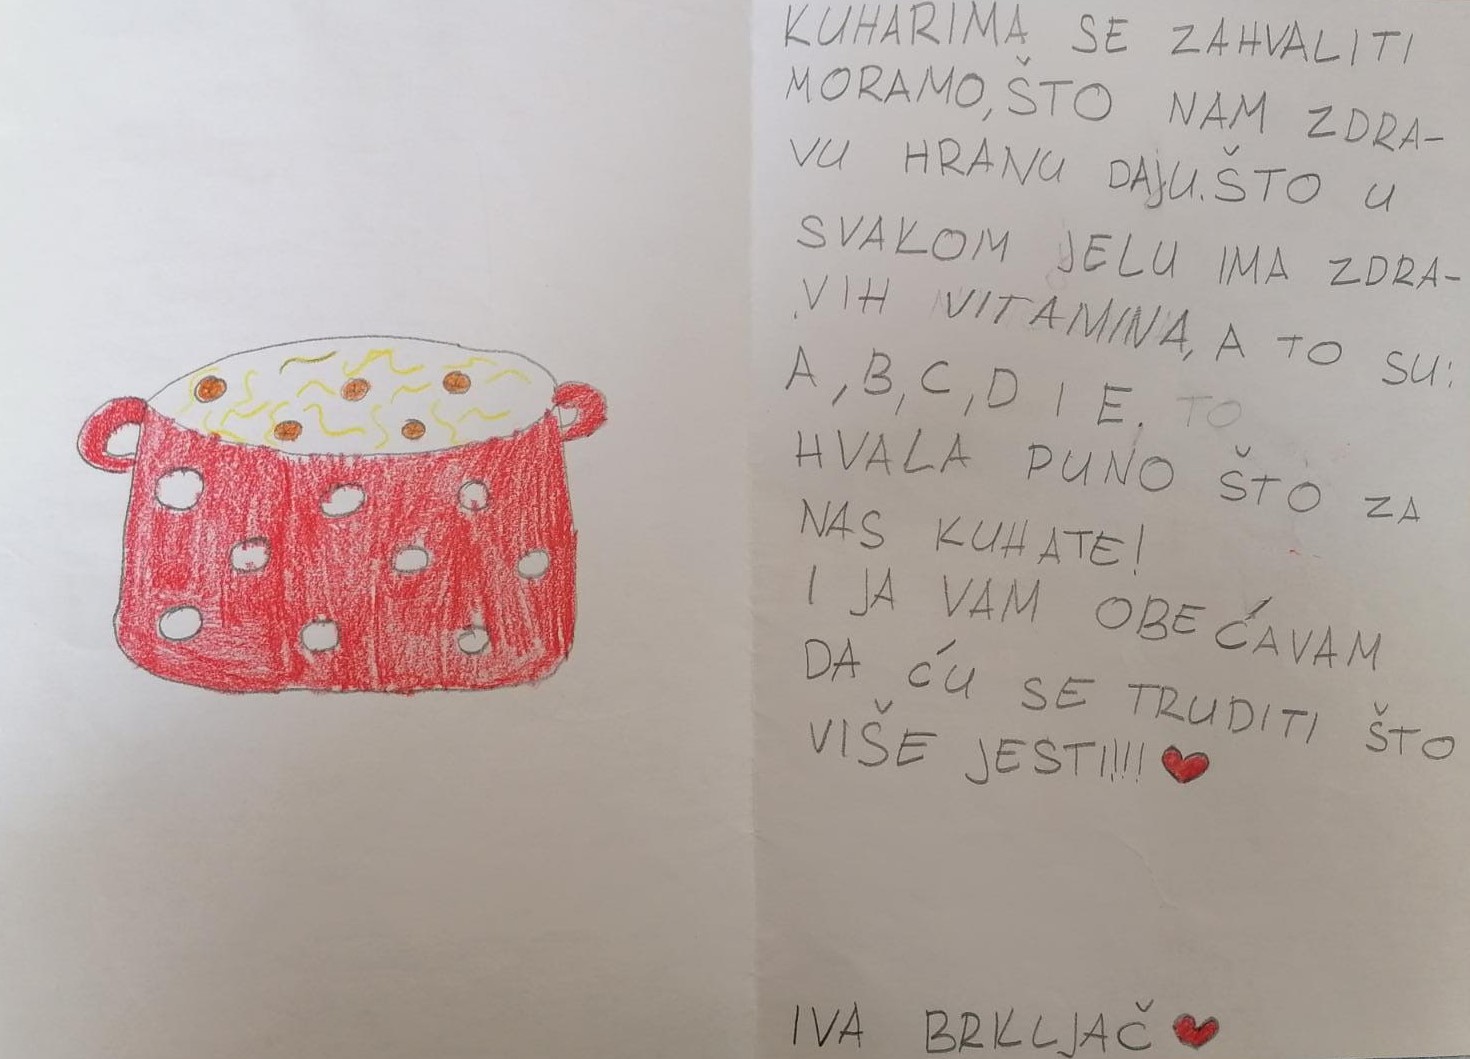 KUHARIMA SE ZAHVALITI
MORAMO, ŠTO NAM ZDRA-
VU HRANU DAJU. ŠTO U
SVAKOM JELU IMA ZDRA-
VIH VITAMINA, A TO SU:
A, B, C, D I E. TO
HVALA PUNO ŠTO ZA
NAS KUHATE!
I JA VAM OBEĆAVAM
DA ĆU SE TRUDITI ŠTO
VIŠE JESTI!!!! ❤
IVA BRKLJAČ ❤